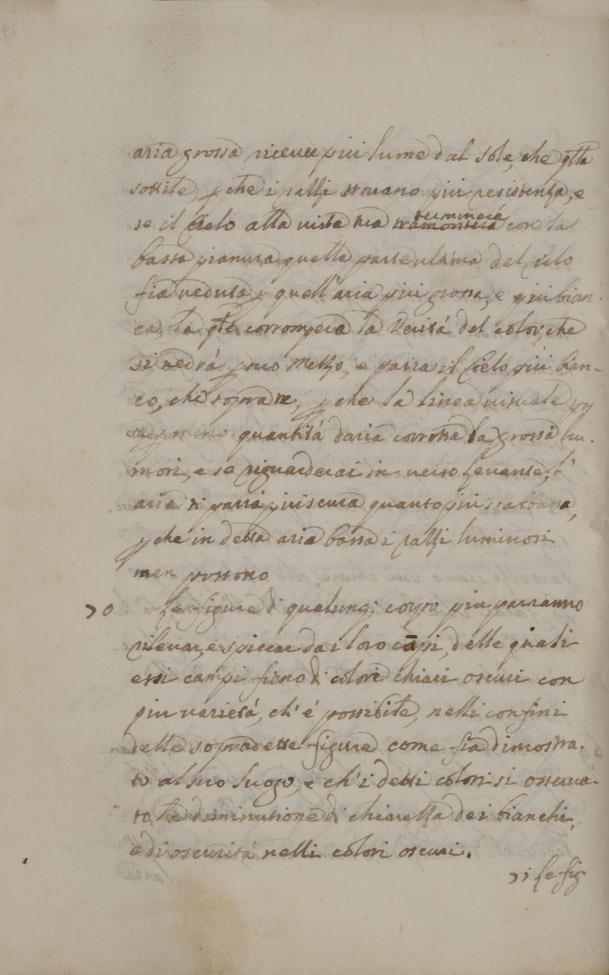 aria grossa riceve piu lume dal sole, che q̃lla
sottile, p che i razzi trovano piu resistenza, e
se il Cielo alla vista tua tramontera con la
lumineia
bassa pianura quella parte ultima del cielo
fia veduta p quell'aria piu grossa, e piu bian-
ca, la q̃le corrompera la verità del color, che
si vedrà p suo mezzo, e parra il Cielo piu bian-
co, che sopra te, p che la linea visuale
p meno quantità d'aria corrotta da grossi hu-
mori, e se riguarderai in verso Levante, l'
aria ti parrà piu scura quanto piu s'abbassa,
p che in detta aria bassa i razzi luminosi
men possono
70 Le figure di qualunq; corpo piu parranno
rilevar, e spiccar da i loro cãpi, delle quali
essi campi fieno di colori chiari oscuri con
piu varietá, ch'é possibile, nelli confini
delle sopradette figure come fia dimostra-
to al suo luogo, e ch'i detti colori si osserva-
to, la diminutione di chiarezza dei bianchi,
e di oscurità nelli colori oscuri.
71 Le fig